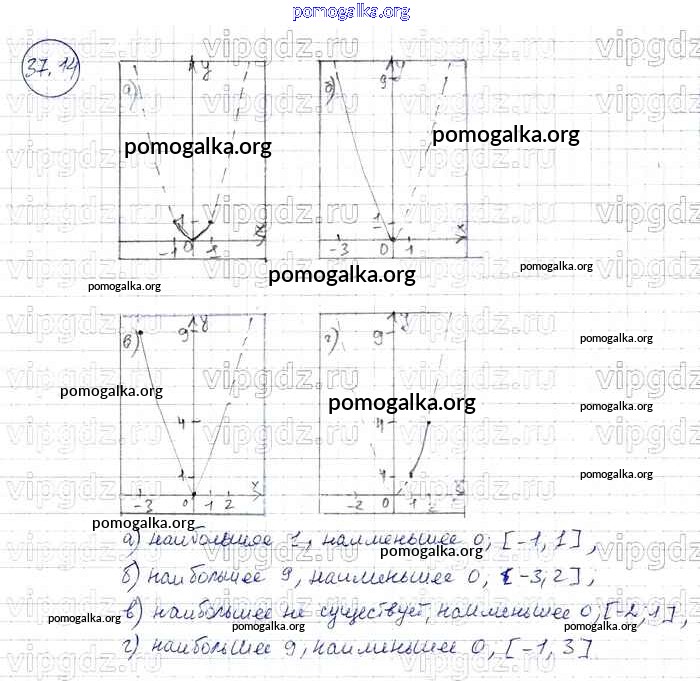 pomogalka.org
37.14
vipgdz.ru vipgdz.ru vipgdz.ru
а) y 1 -1 0 1 x
б) y 9 1 -3 0 1 x
pomogalka.org
pomogalka.org
pomogalka.org
pomogalka.org
pomogalka.org
в) y 9 4 1 -3 0 1 2 x
г) y 9 4 1 -2 0 1 2 x
pomogalka.org
pomogalka.org
pomogalka.org
pomogalka.org
pomogalka.org
pomogalka.org
а) наибольшее 1, наименьшее 0, [-1, 1],
pomogalka.org
б) наибольшее 9, наименьшее 0, [-3, 2],
в) наибольшее не существует, наименьшее 0, [-2, 1],
pomogalka.org pomogalka.org pomogalka.org
г) наибольшее 9, наименьшее 0, [-1, 3]